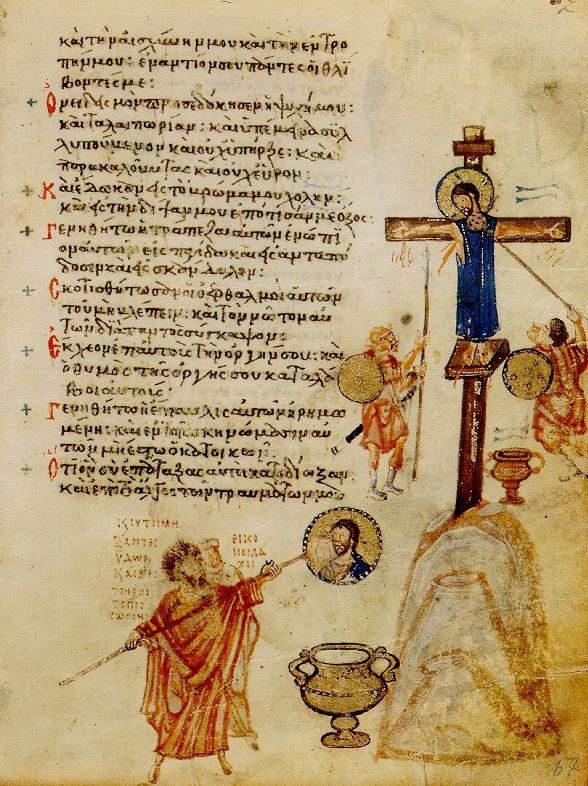 καὶ τὴν αἰσχύνην μου καὶ τὴν ἐντρο
πήν μου: ἐναντίον σου πάντες οἱ θλί
βοντές με:
Ὀνειδισμὸν προσεδόκησεν ἡ ψυχή μου:
καὶ ταλαιπωρίαν: καὶ ὑπέμεινα συλ
λυπούμενον καὶ οὐχ ὑπῆρξε: καὶ
παρακαλοῦντας καὶ οὐχ εὗρον:
Καὶ ἔδωκαν εἰς τὸ βρῶμά μου χολήν:
καὶ εἰς τὴν δίψαν μου ἐπότισάν με ὄξος:
Γενηθήτω ἡ τράπεζα αὐτῶν ἐνώπι
ον αὐτῶν εἰς παγίδα καὶ εἰς ἀνταπό
δοσιν καὶ εἰς σκάνδαλον:
Σκοτισθήτωσαν οἱ ὀφθαλμοὶ αὐτῶν
τοῦ μὴ βλέπειν: καὶ τὸν νῶτον αὐ
τῶν διὰ παντὸς σύγκαμψον:
Ἔκχεον ἐπ' αὐτοὺς τὴν ὀργήν σου: καὶ
ὁ θυμὸς τῆς ὀργῆς σου καταλά
βοι αὐτούς:
Γενηθήτω ἡ ἔπαυλις αὐτῶν ἠρημω
μένη: καὶ ἐν τοῖς σκηνώμασιν αὐ
τῶν μὴ ἔστω ὁ κατοικῶν:
Ὅτι ὃν σὺ ἐπάταξας αὐτοὶ κατεδίωξαν:
καὶ ἐπὶ τὸ ἄλγος τῶν τραυμάτων μου
ΞΑΝΤΕΣ
ΥΔΩΡ
ΤΟΝΕΠΙ
ΤΟΠΡΟΣ
ΩΠΟΝ
ΕΙΚΟ
ΝΟΜΑ
ΧΟΙ
67